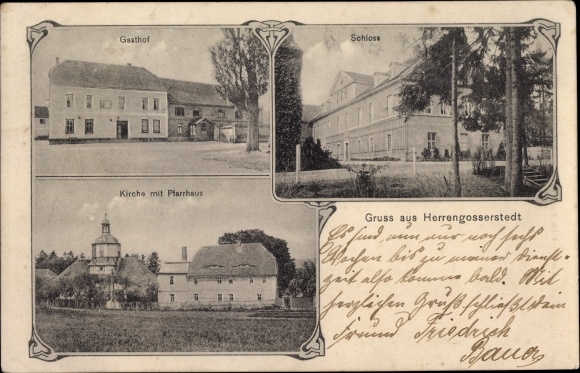 Gasthof
Schloss
Kirche mit Pfarrhaus
Gruss aus Herrengosserstedt
Es sind nun nur noch sechs
Wochen bis zu meiner Dienst-
zeit also komme bald. Mit
herzlichen Gruß schließt dein
Freund Friedrich
Bauer